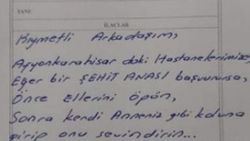 TANI:
İLAÇLAR
Kıymetli Arkadaşım,
Afyonkarahisar daki Hastanelerimize,
Eğer bir ŞEHİT ANASI başvurursa,
Önce Ellerini öpün,
Sonra kendi Anneniz gibi koluna
girip onu sevindirin...